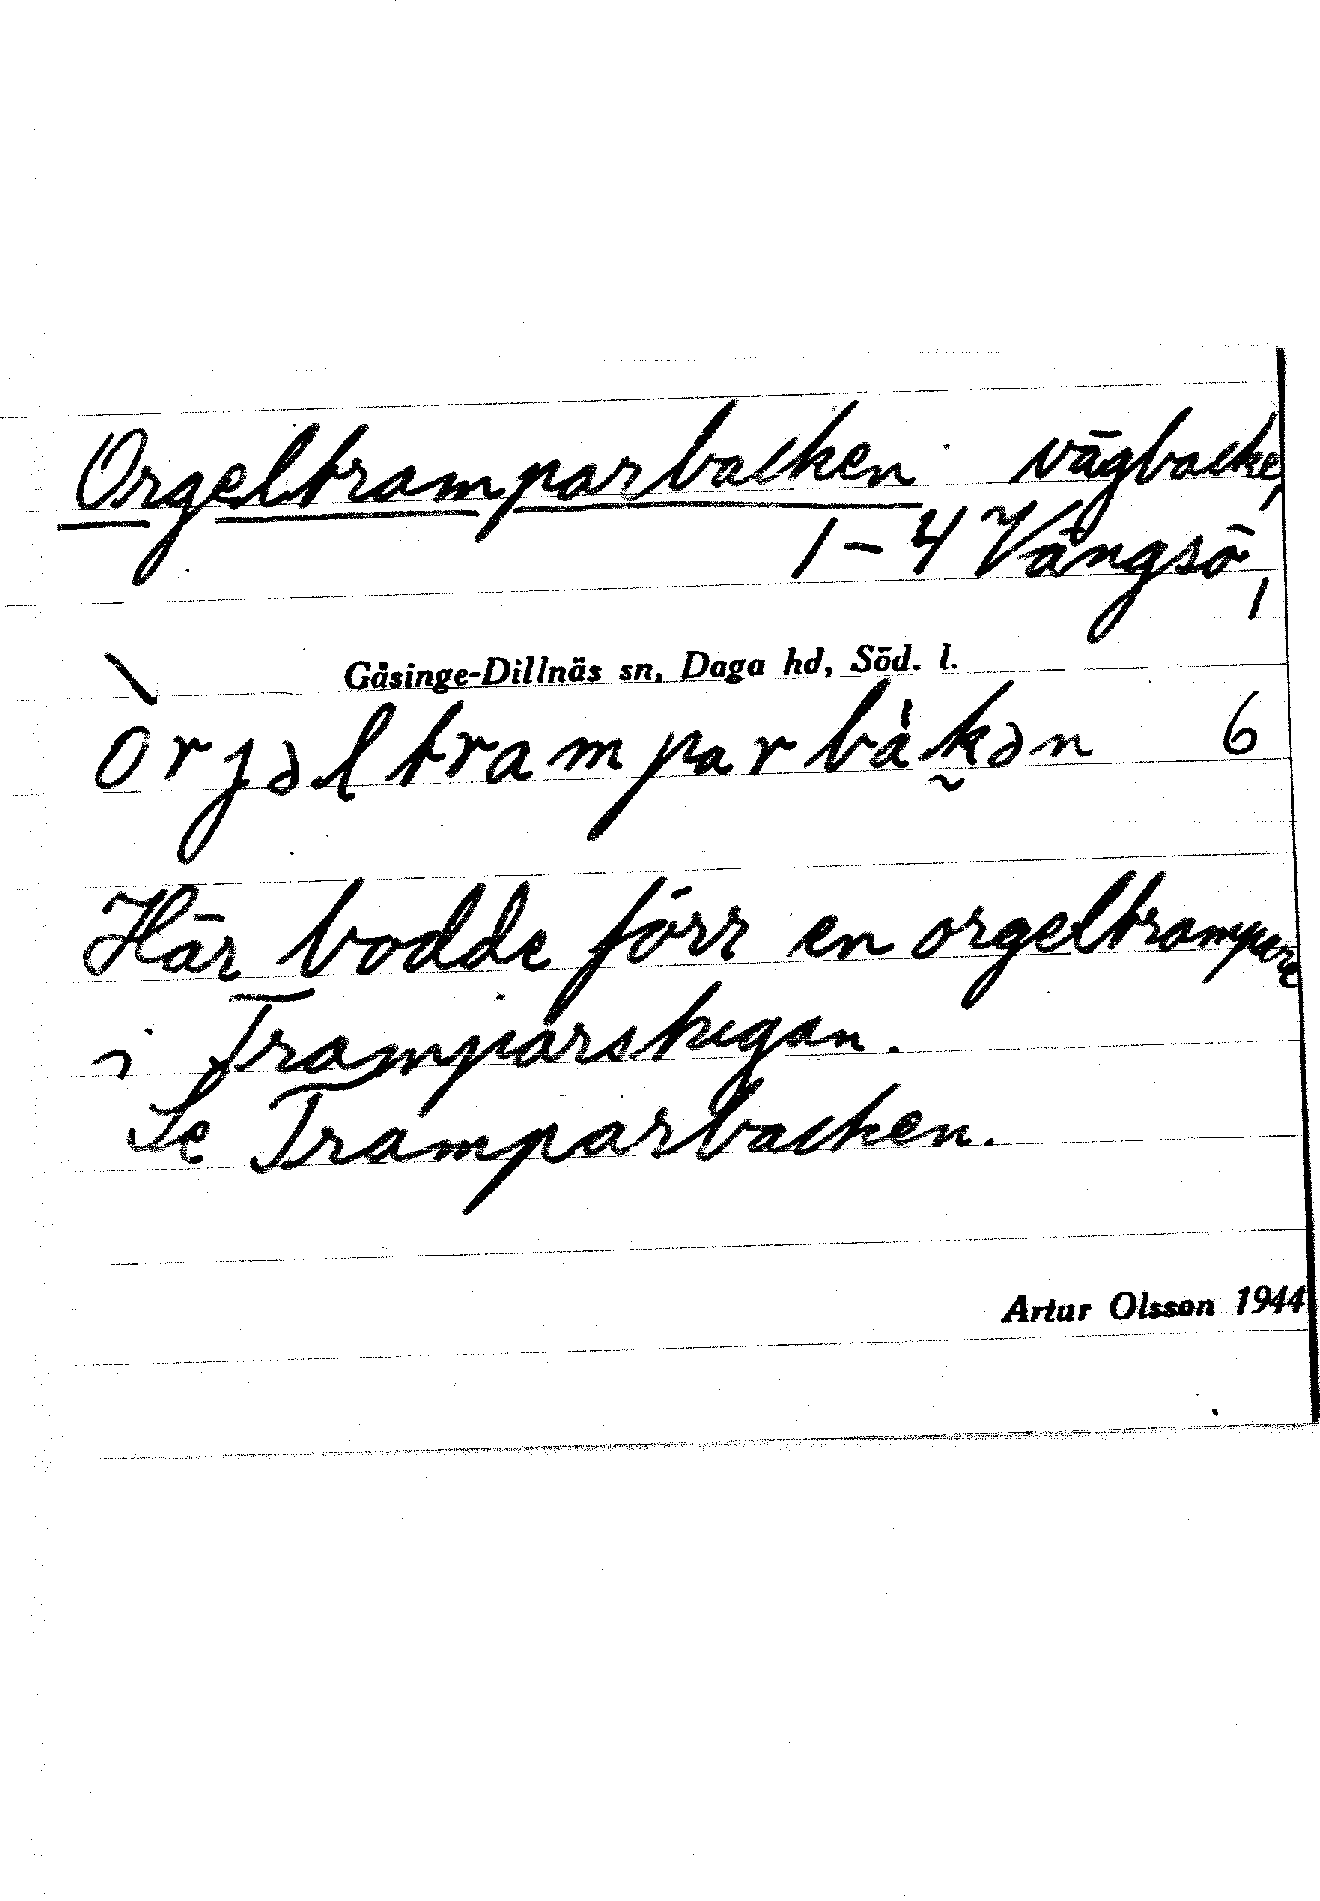 Orgeltramparbacken vägbacke,
1-4 Vängsö,
Gåsinge-Dillnäs sn, Daga hd, Söd. l.
òrjəltramparbàk̰ən 6
Här bodde förr en orgeltrampare
i Tramparstugan.
Se Tramparbacken.
Artur Olsson 1944